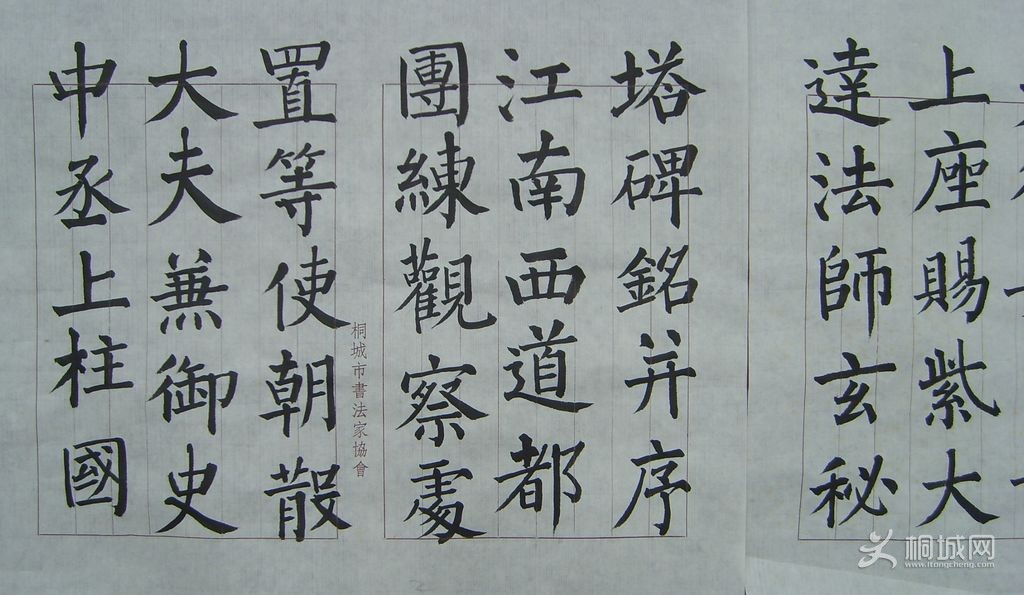 上座賜紫大
達法師玄秘
塔碑銘并序
江南西道都
團練觀察處
置等使朝散
大夫兼御史
中丞上柱國
桐城市書法家協會
桐城网
www.itongcheng.com